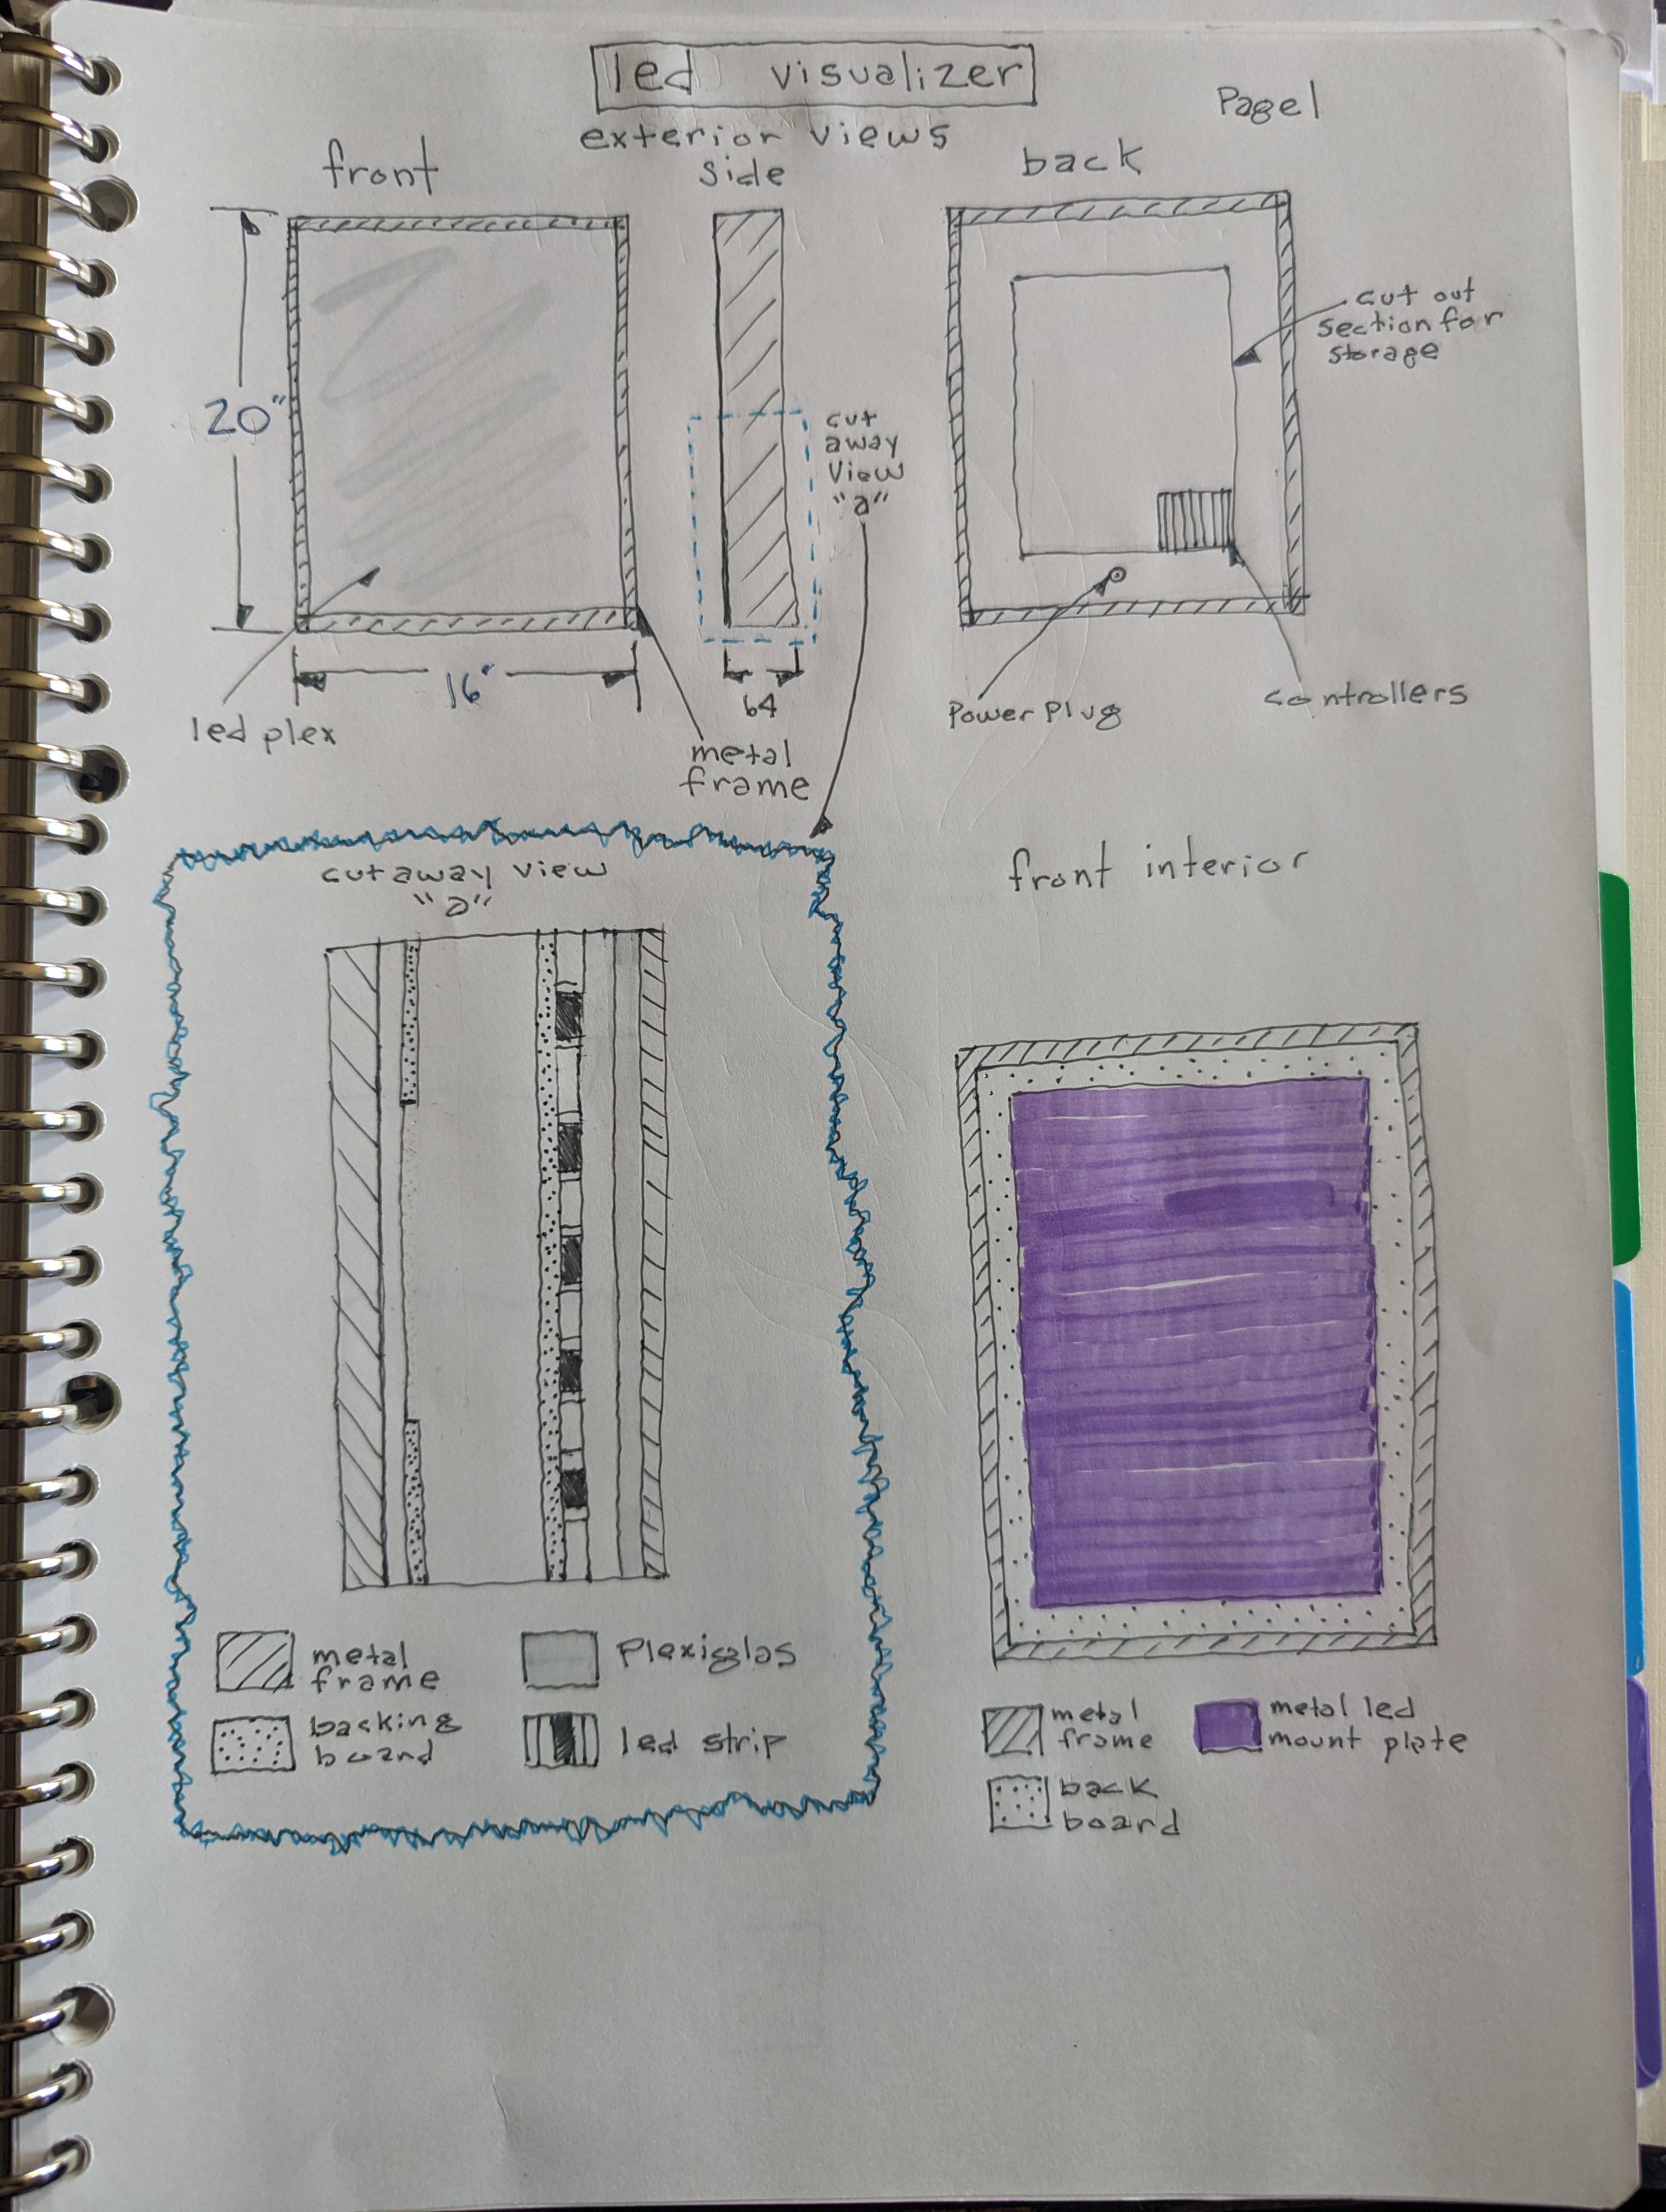 led visualizer
Page 1
exterior views
front
side
back
20"
16"
64
cut
away
view
"a"
cut out
section for
storage
led plex
metal
frame
Power Plug
controllers
cutaway view
"a"
front interior
metal
frame
Plexiglas
backing
board
led strip
metal
frame
metal led
mount plate
back
board